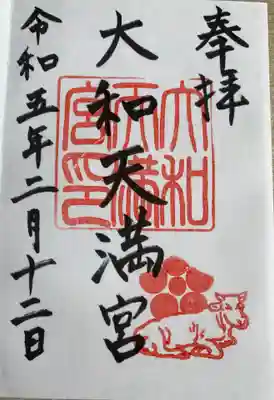 奉拝
大和天満宮
大和天満宮印
令和五年二月十二日